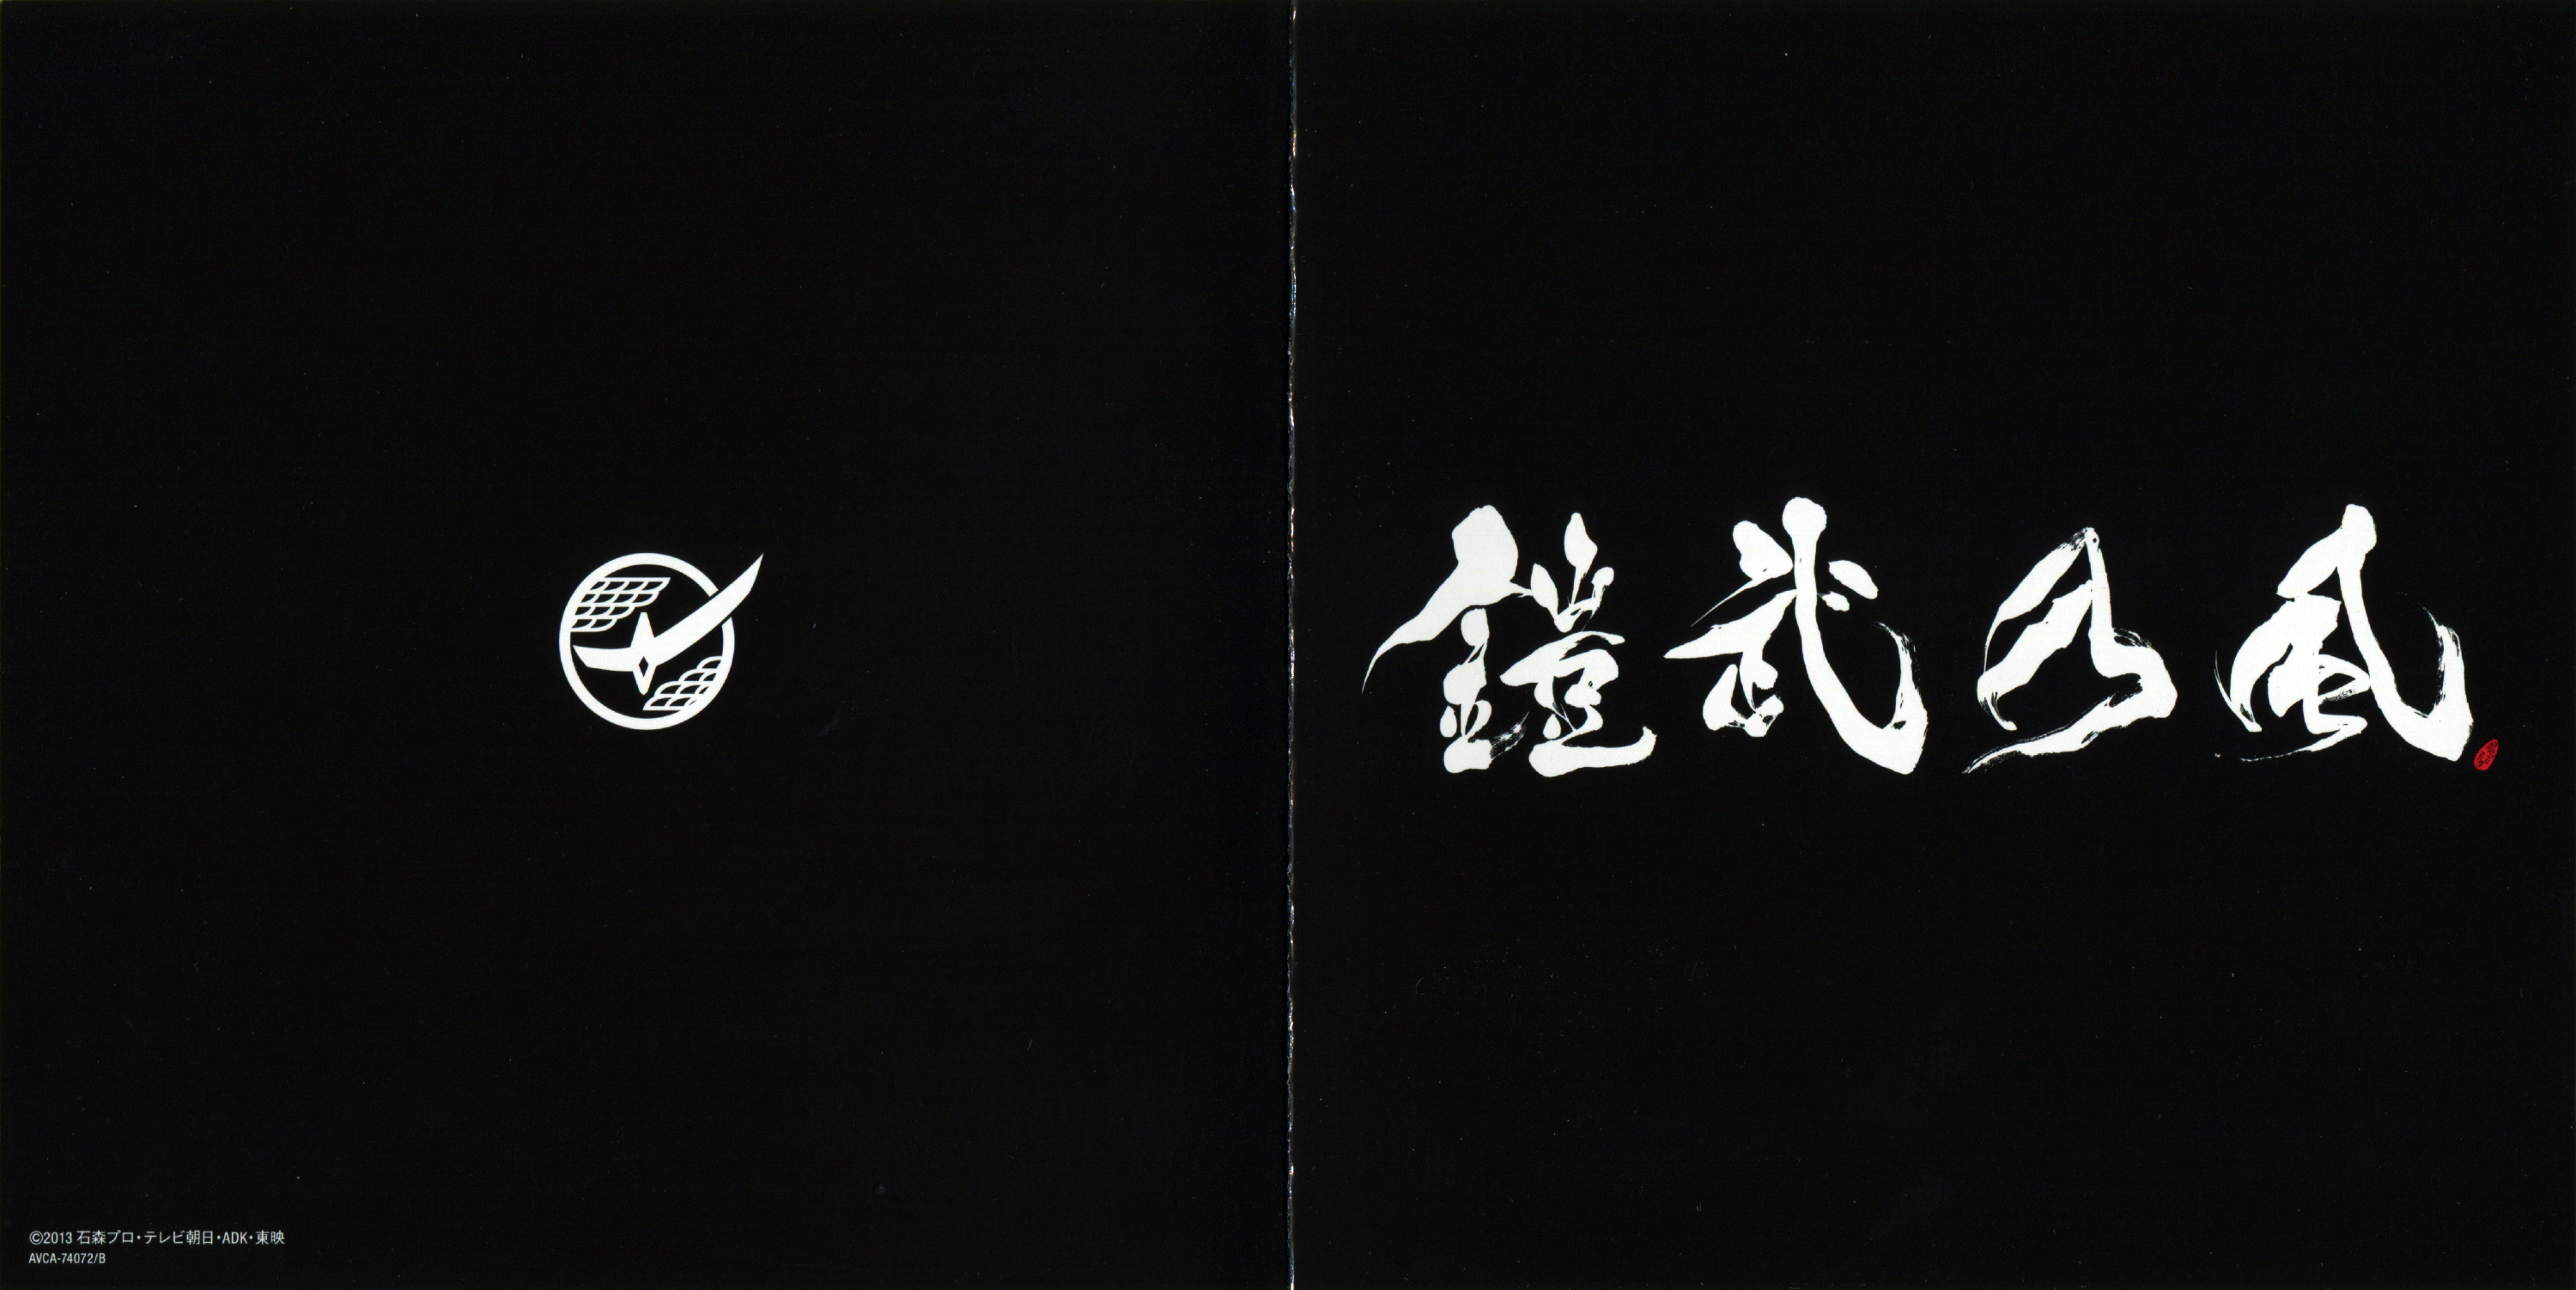 鎧武乃風
©2013 石森プロ・テレビ朝日・ADK・東映
AVCA-74072/B